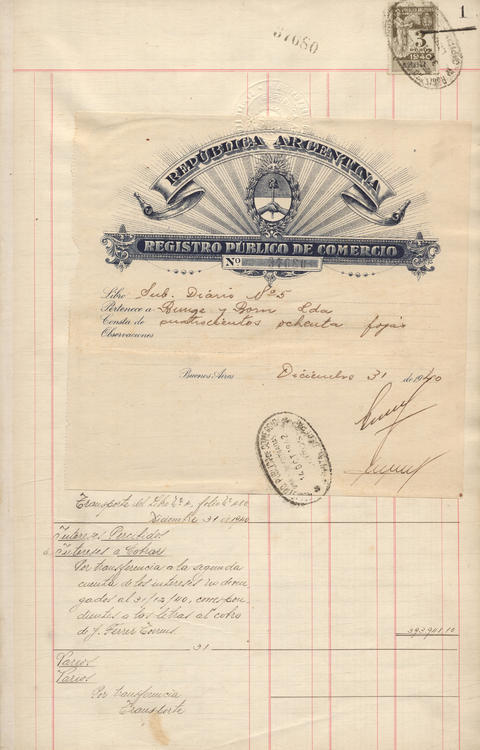 1
37680
3
1940
REPÚBLICA ARGENTINA
REGISTRO PÚBLICO DE COMERCIO
Nº 37680
Libro Sub. Diario Nº 5
Pertenece a Bunge y Born Lda
Consta de cuatrocientos ochenta fojas
Observaciones
Buenos Aires Diciembre 31 de 1940
Transporte del Libro Nº 4, folio Nº 480
Diciembre 31 de 1940
Intereses Percibidos
a Intereses a Cobrar
Por transferencia a la segunda
cuenta de los intereses no deven-
gados al 31/12/40, correspon-
dientes a las letras al cobro
de J. Ferrer Torres 393.901.10
31
Varios
Varios
Por transferencia
Transporte